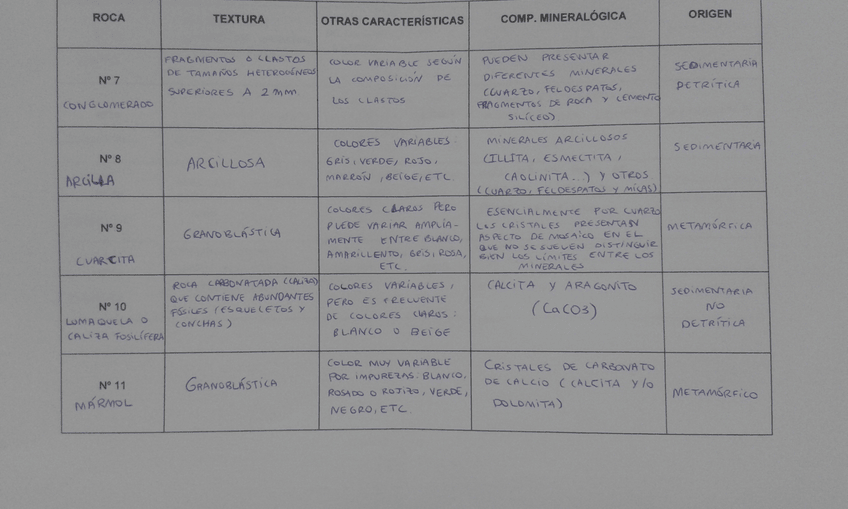 ROCA
TEXTURA
OTRAS CARACTERÍSTICAS
COMP. MINERALÓGICA
ORIGEN
Nº 7
CONGLOMERADO
FRAGMENTOS O CLASTOS
DE TAMAÑOS HETEROGÉNEOS
SUPERIORES A 2mm
COLOR VARIABLE SEGÚN
LA COMPOSICIÓN DE
LOS CLASTOS
PUEDEN PRESENTAR
DIFERENTES MINERALES
(CUARZO, FELDESPATOS,
FRAGMENTOS DE ROCA Y CEMENTO
SILÍCEO)
SEDIMENTARIA
DETRÍTICA
Nº 8
ARCILLA
ARCILLOSA
COLORES VARIABLES
GRIS, VERDE, ROJO,
MARRÓN, BEIGE, ETC
MINERALES ARCILLOSOS
(ILLITA, ESMECTITA,
CAOLINITA...) Y OTROS
(CUARZO, FELDESPATOS Y MICAS)
SEDIMENTARIA
Nº 9
CUARCITA
GRANOBLÁSTICA
COLORES CLAROS PERO
PUEDE VARIAR AMPLIA-
MENTE ENTRE BLANCO,
AMARILLENTO, GRIS, ROSA,
ETC.
ESENCIALMENTE POR CUARZO
LOS CRISTALES PRESENTAN
ASPECTO DE MOSAICO EN EL
QUE NO SE SUELEN DISTINGUIR
BIEN LOS LÍMITES ENTRE LOS
MINERALES
METAMÓRFICA
Nº 10
LUMAQUELA O
CALIZA FOSILÍFERA
ROCA CARBONATADA (CALIZA)
QUE CONTIENE ABUNDANTES
FÓSILES (ESQUELETOS Y
CONCHAS)
COLORES VARIABLES,
PERO ES FRECUENTE
DE COLORES CLAROS:
BLANCO O BEIGE
CALCITA Y ARAGONITO
(CaCO3)
SEDIMENTARIA
NO
DETRÍTICA
Nº 11
MÁRMOL
GRANOBLÁSTICA
COLOR MUY VARIABLE
POR IMPUREZAS. BLANCO,
ROSADO O ROJIZO, VERDE,
NEGRO, ETC.
CRISTALES DE CARBONATO
DE CALCIO (CALCITA Y/O
DOLOMITA)
METAMÓRFICO